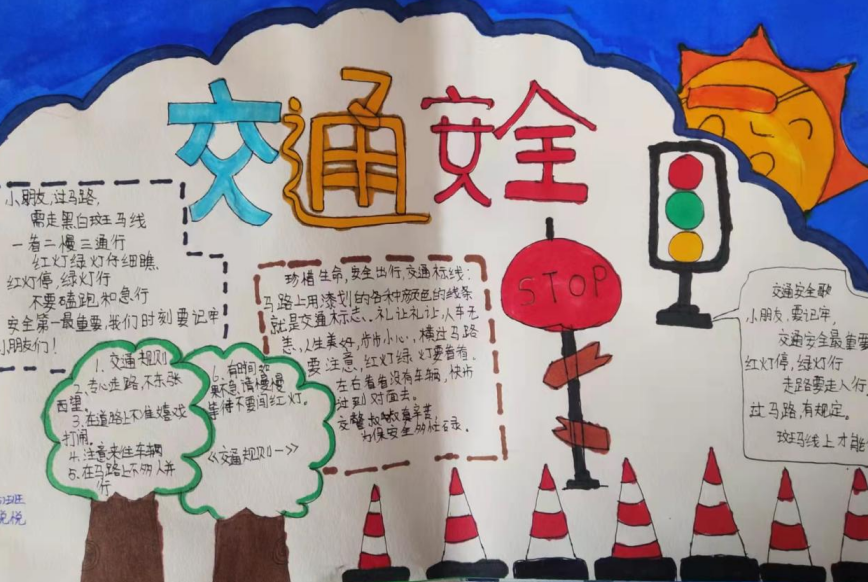 交通安全
小朋友,过马路,
需走黑白斑马线
一看二慢三通行
红灯绿灯仔细瞧
红灯停,绿灯行
不要磕跑和急行
安全第一最重要,我们时刻要记牢
小朋友们!
1、交通规则
2、专心走路,不东张
西望。
3、在道路上不准嬉戏
打闹。
4、注意来往车辆
5、在马路上不多人并
行
6、有时间
别急,请慢慢
等待不要闯红灯。
《交通规则一》
珍惜生命,安全出行,交通标线:
马路上用漆划的各种颜色的线条
就是交通标志、礼让礼让,人车无
恙、人生美好,步步小心、横过马路
要注意,红灯绿灯要看看,
左右看看没有车辆,快步
过到对面去。
交警叔叔真辛苦
为保安全多忙碌。
STOP
交通安全歌
小朋友,要记牢,
交通安全最重要
红灯停,绿灯行
走路要走人行
过马路,有规定。
斑马线上才能
班